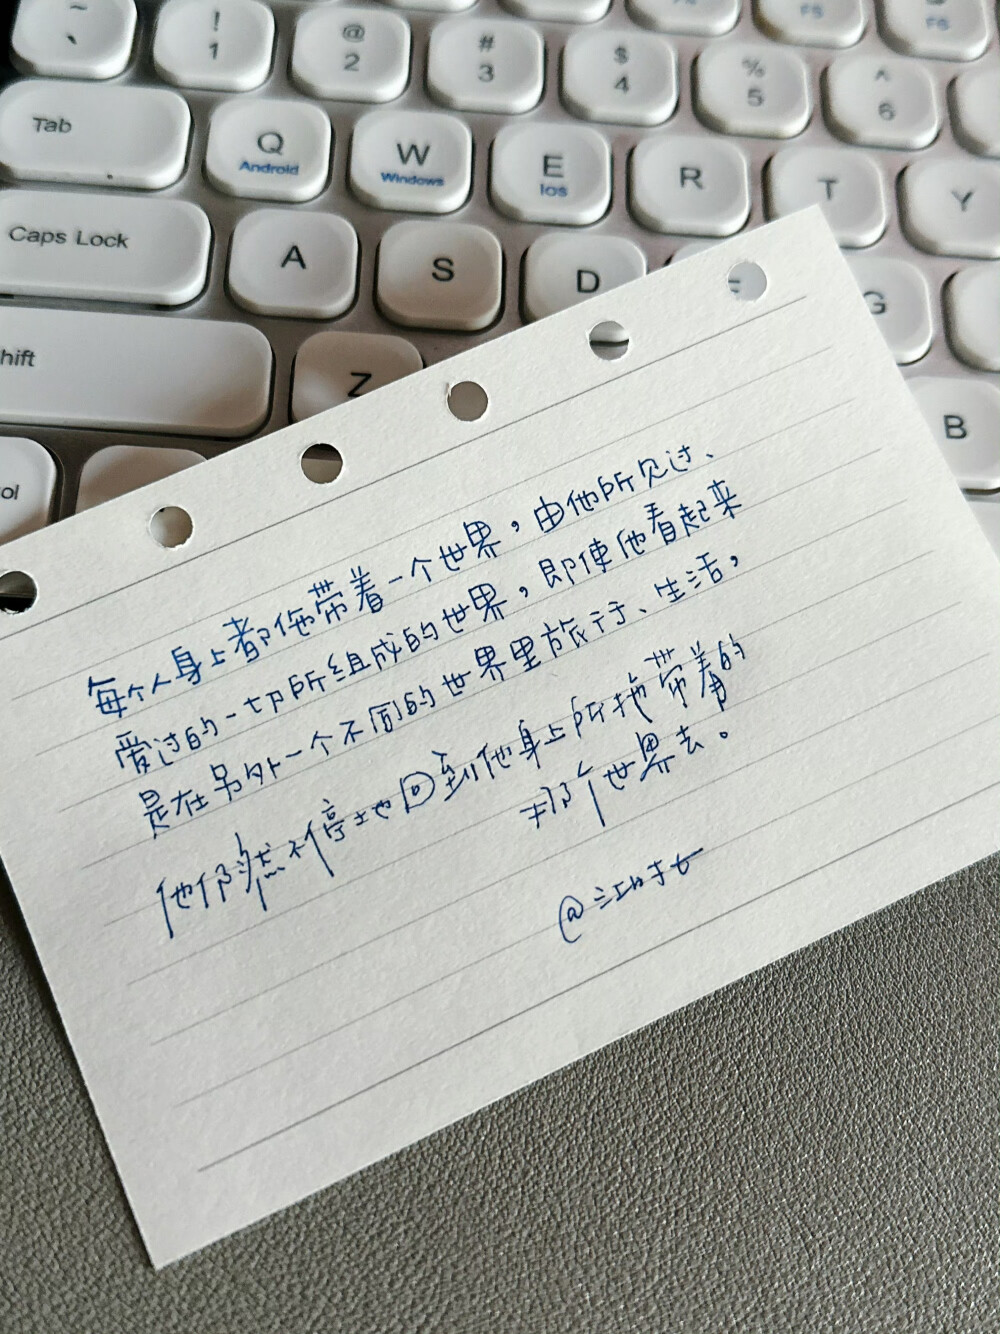 ~ `
! 1
@ 2
# 3
$ 4
% 5
^ 6
F5
F6
Tab
Q Android
W Windows
E Ios
R
T
Y
Caps Lock
A
S
D
G
hift
Z
B
ol
每个人身上都拖带着一个世界，由他所见过、
爱过的一切所组成的世界，即使他看起来
是在另外一个不同的世界里旅行、生活，
他仍然不停地回到他身上所拖带着的
那个世界去。